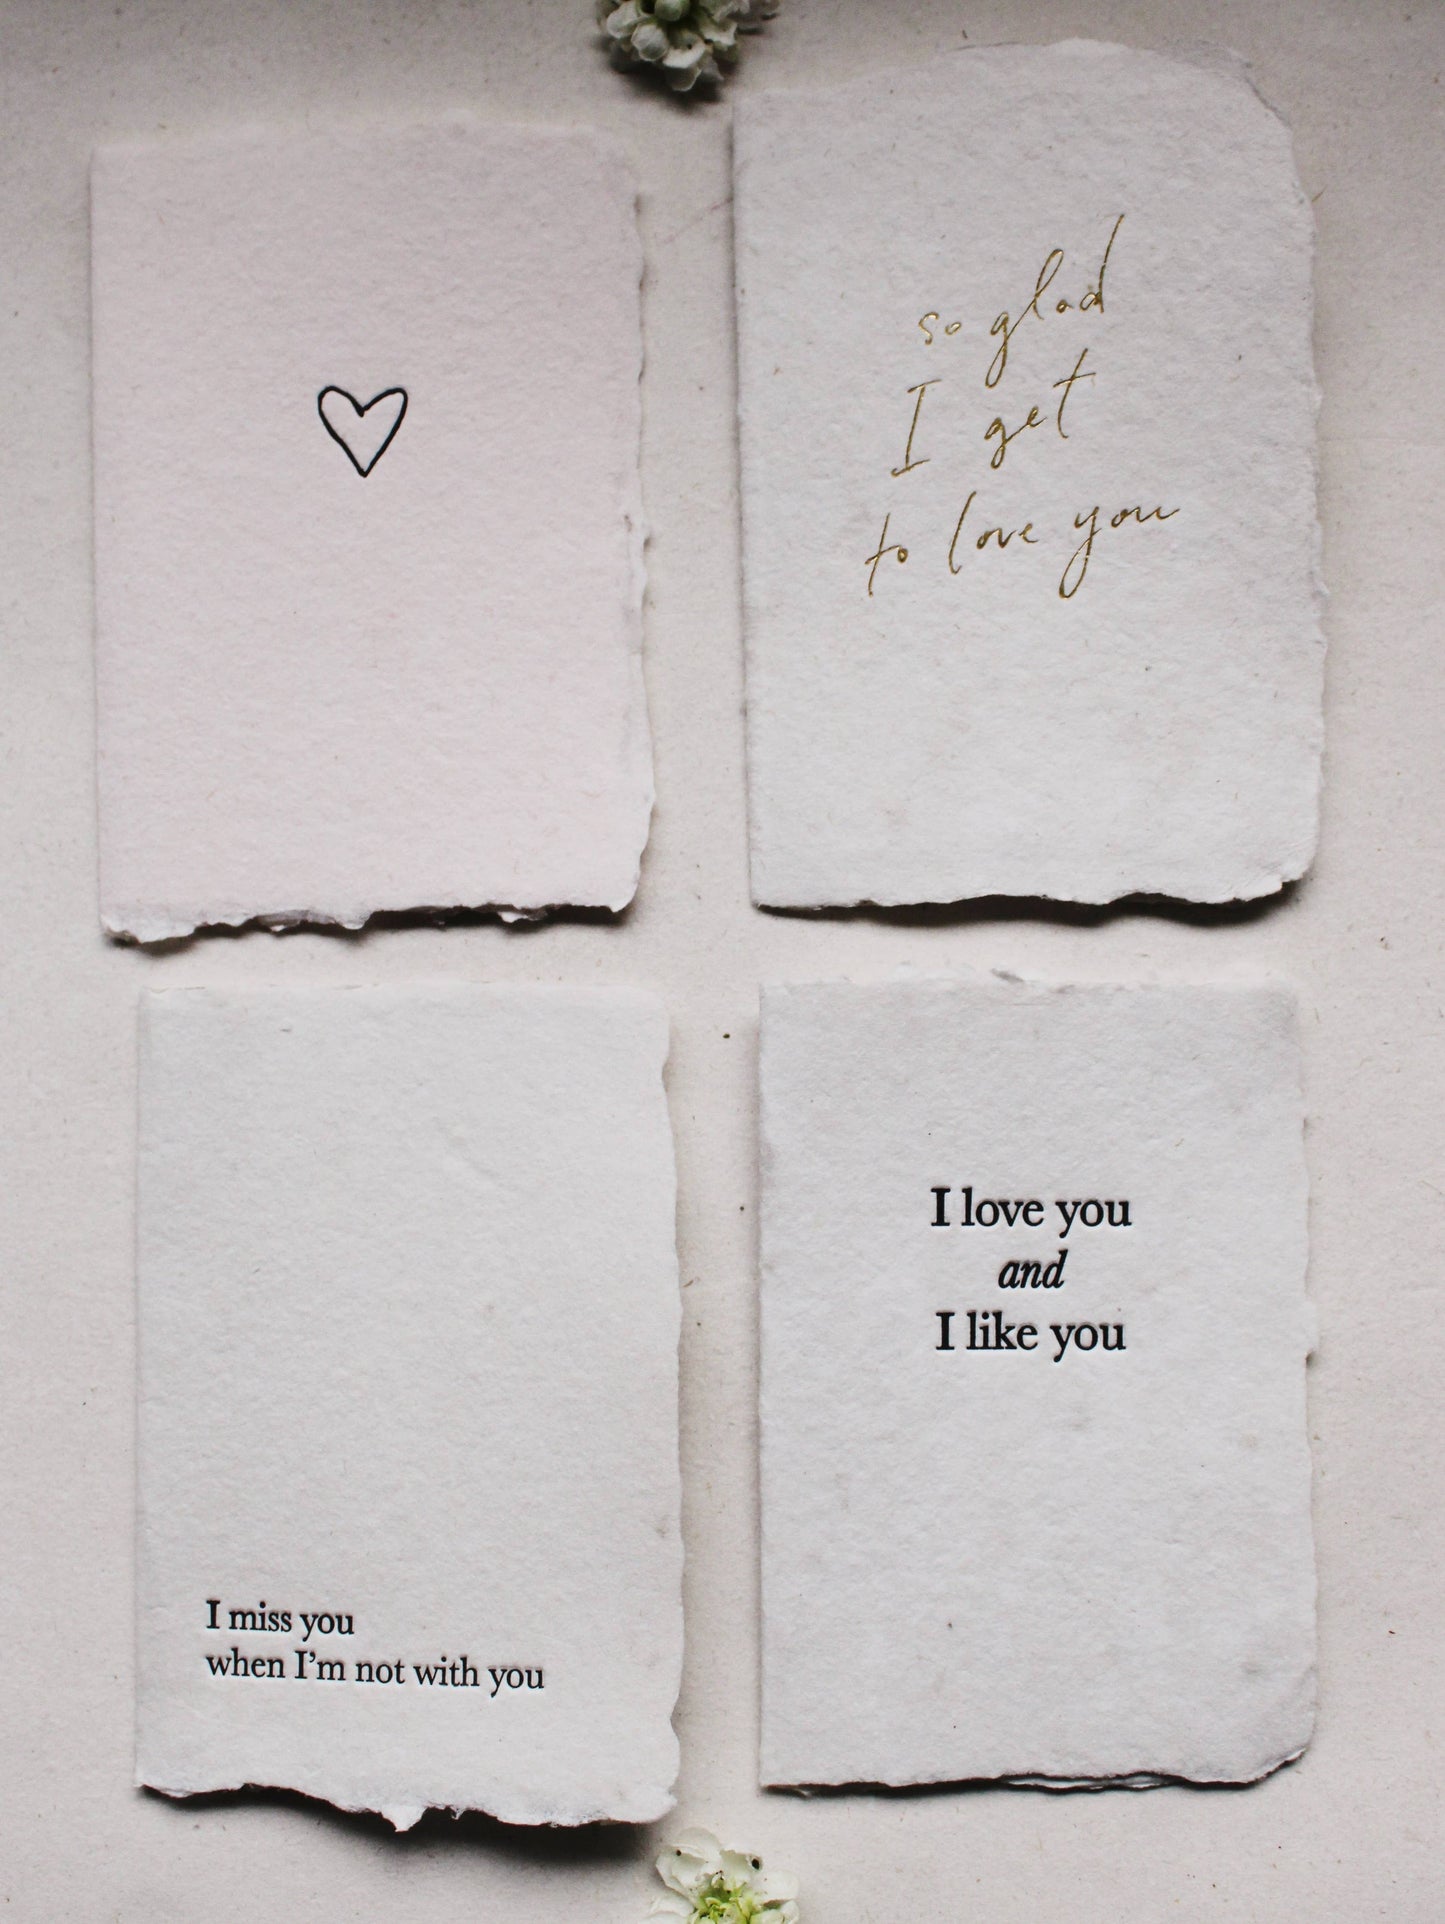 so glad
I get
to love you
I miss you
when I'm not with you
I love you
and
I like you